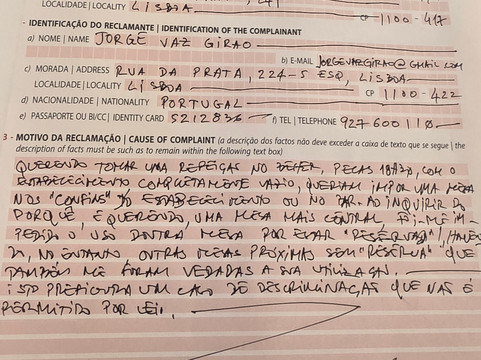 LOCALIDADE | LOCALITY LISBOA CP 1100-417
- IDENTIFICAÇÃO DO RECLAMANTE | IDENTIFICATION OF THE COMPLAINANT
a) NOME | NAME JORGE VAZ GIRÃO
b) E-MAIL JORGEVAZGIRAO@GMAIL.COM
c) MORADA | ADDRESS RUA DA PRATA, 224-5 ESQ, LISBOA
LOCALIDADE | LOCALITY LISBOA CP 1100-422
d) NACIONALIDADE | NATIONALITY PORTUGAL
e) PASSAPORTE OU BI/CC | IDENTITY CARD 5212836 f) TEL | TELEPHONE 927 600 110
3 - MOTIVO DA RECLAMAÇÃO | CAUSE OF COMPLAINT (a descrição dos factos não deve exceder a caixa de texto que se segue | the
description of facts must be such as to remain within the following text box)
QUERENDO TOMAR UMA REFEIÇÃO NO PELAS 18H30, COM O
ESTABELECIMENTO COMPLETAMENTE VAZIO, QUERIAM IMPOR UMA MESA
NOS "CONFINS" DO ESTABELECIMENTO OU NO BAR. AO INQUIRIR DO
PORQUÊ E QUERENDO, UMA MESA MAIS CENTRAL FOI-ME IM-
PEDIDO O USO DOUTRA MESA POR ESTAR "RESERVADA", HAVEN-
DO, NO ENTANTO OUTRAS MESAS PRÓXIMAS SEM "RESERVA" QUE
TAMBÉM ME FORAM VEDADAS A SUA UTILIZAÇÃO.
ISTO PREFIGURA UM CASO DE DISCRIMINAÇÃO QUE NÃO É
PERMITIDO POR LEI.